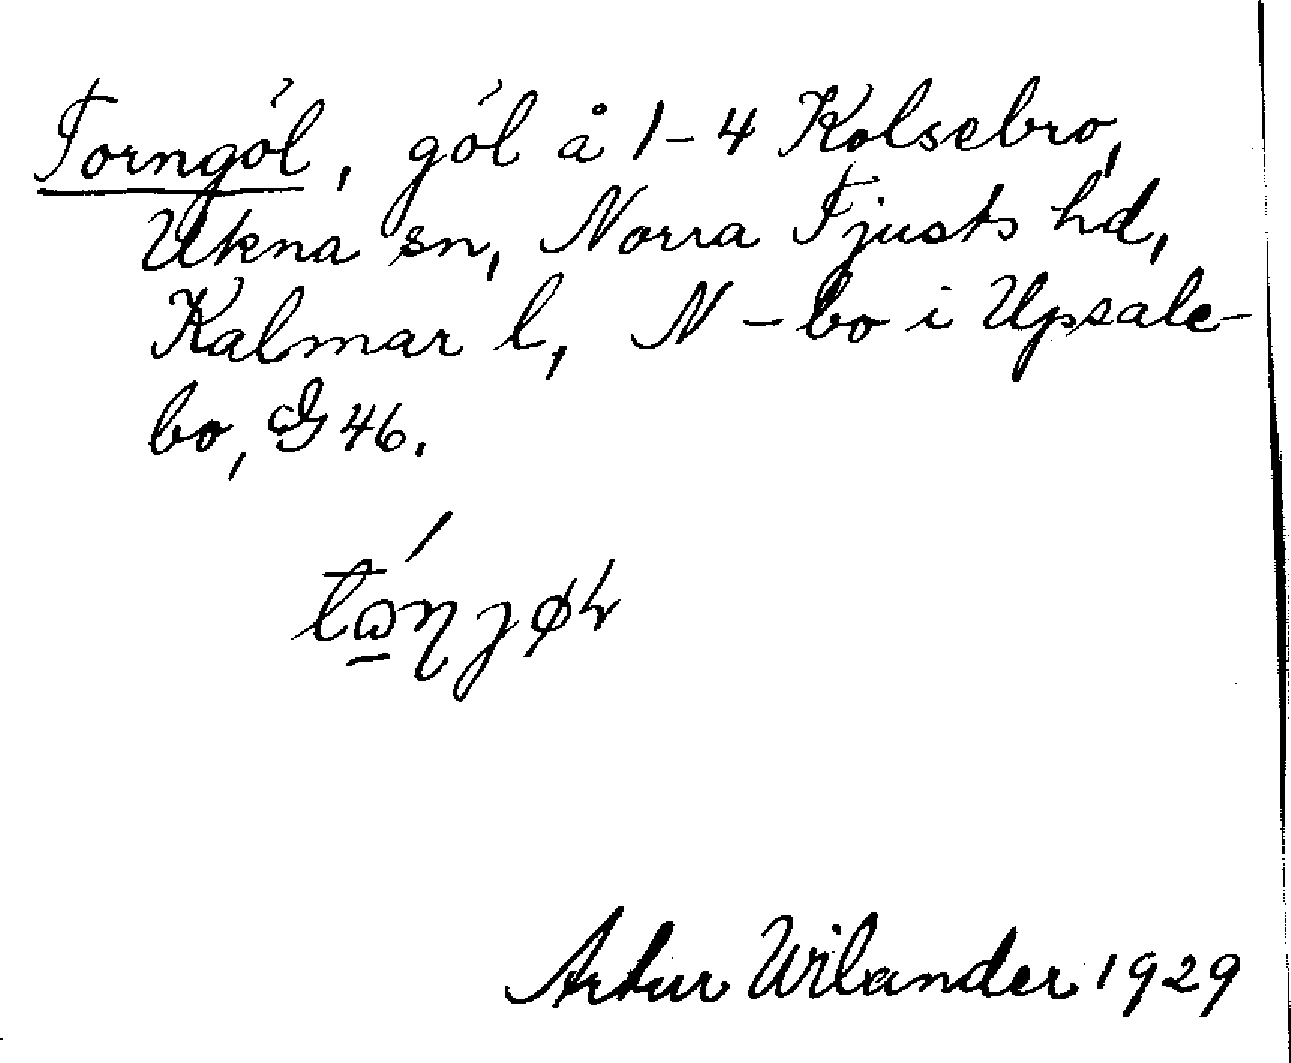 Torngöl, göl å 1-4 Kolsebro,
Ukna sn, Norra Tjusts hd,
Kalmar l, N-bo i Upsale-
bo, G 46.
Artur Wilander 1929